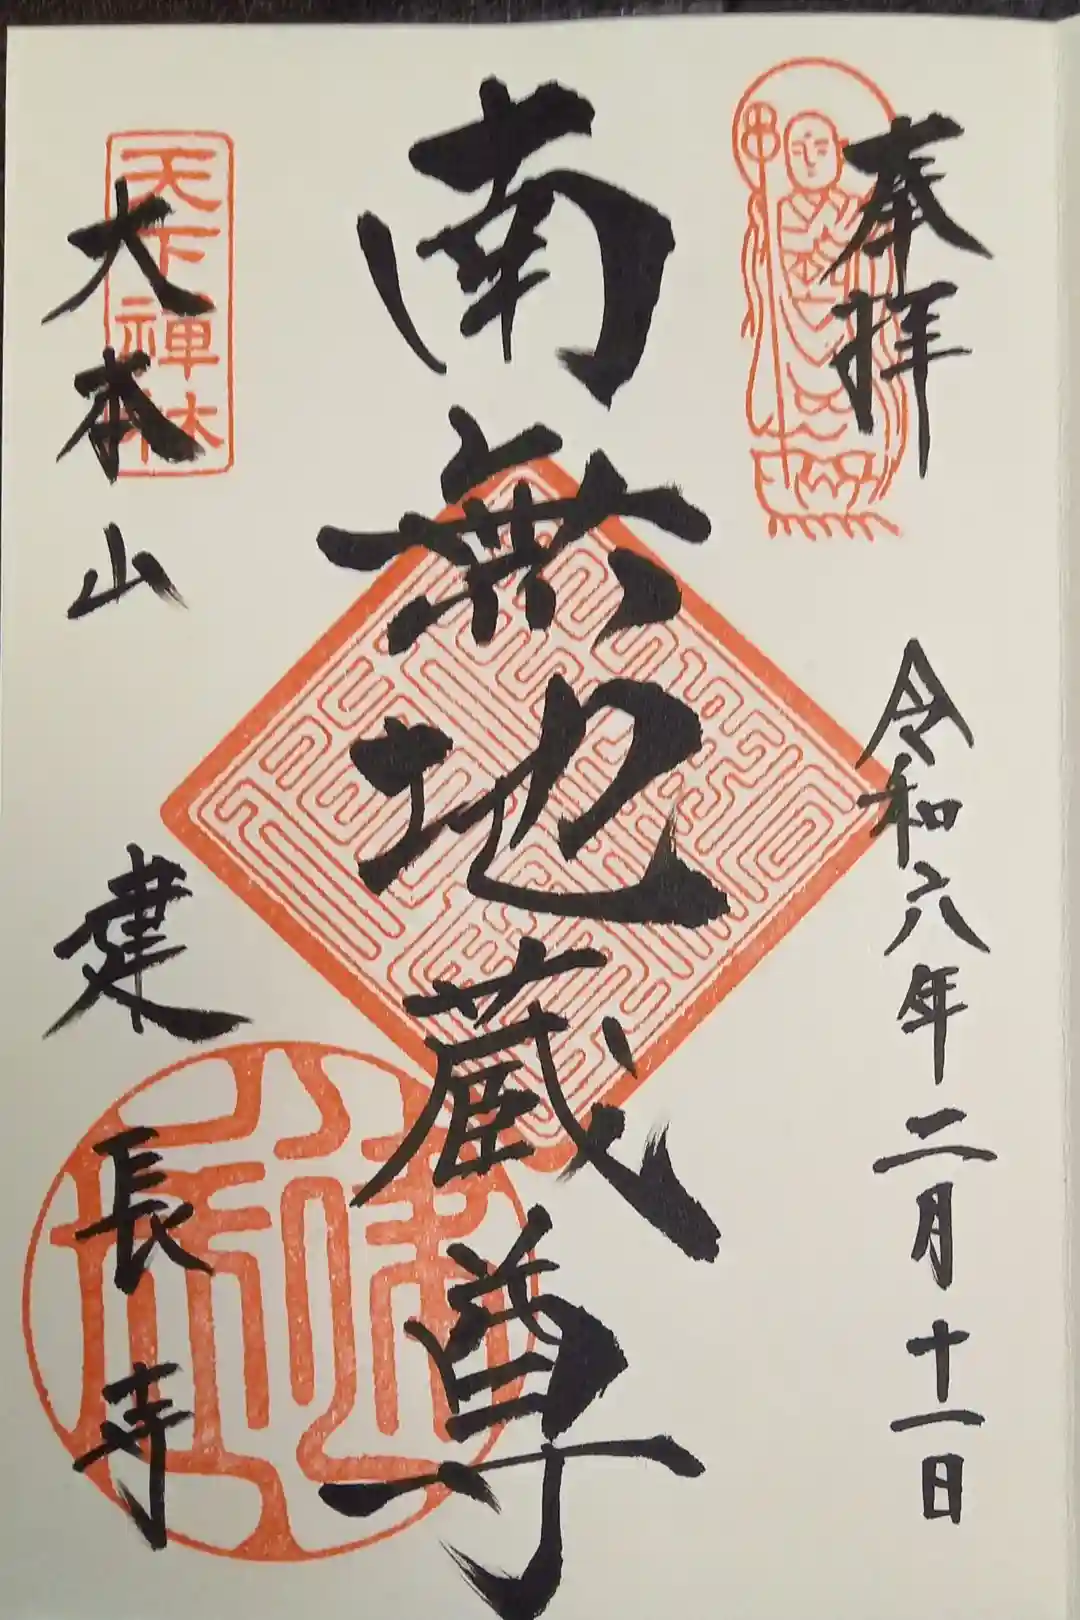 奉拝
令和六年二月十一日
南無地蔵尊
天下禅林
大本山
建長寺